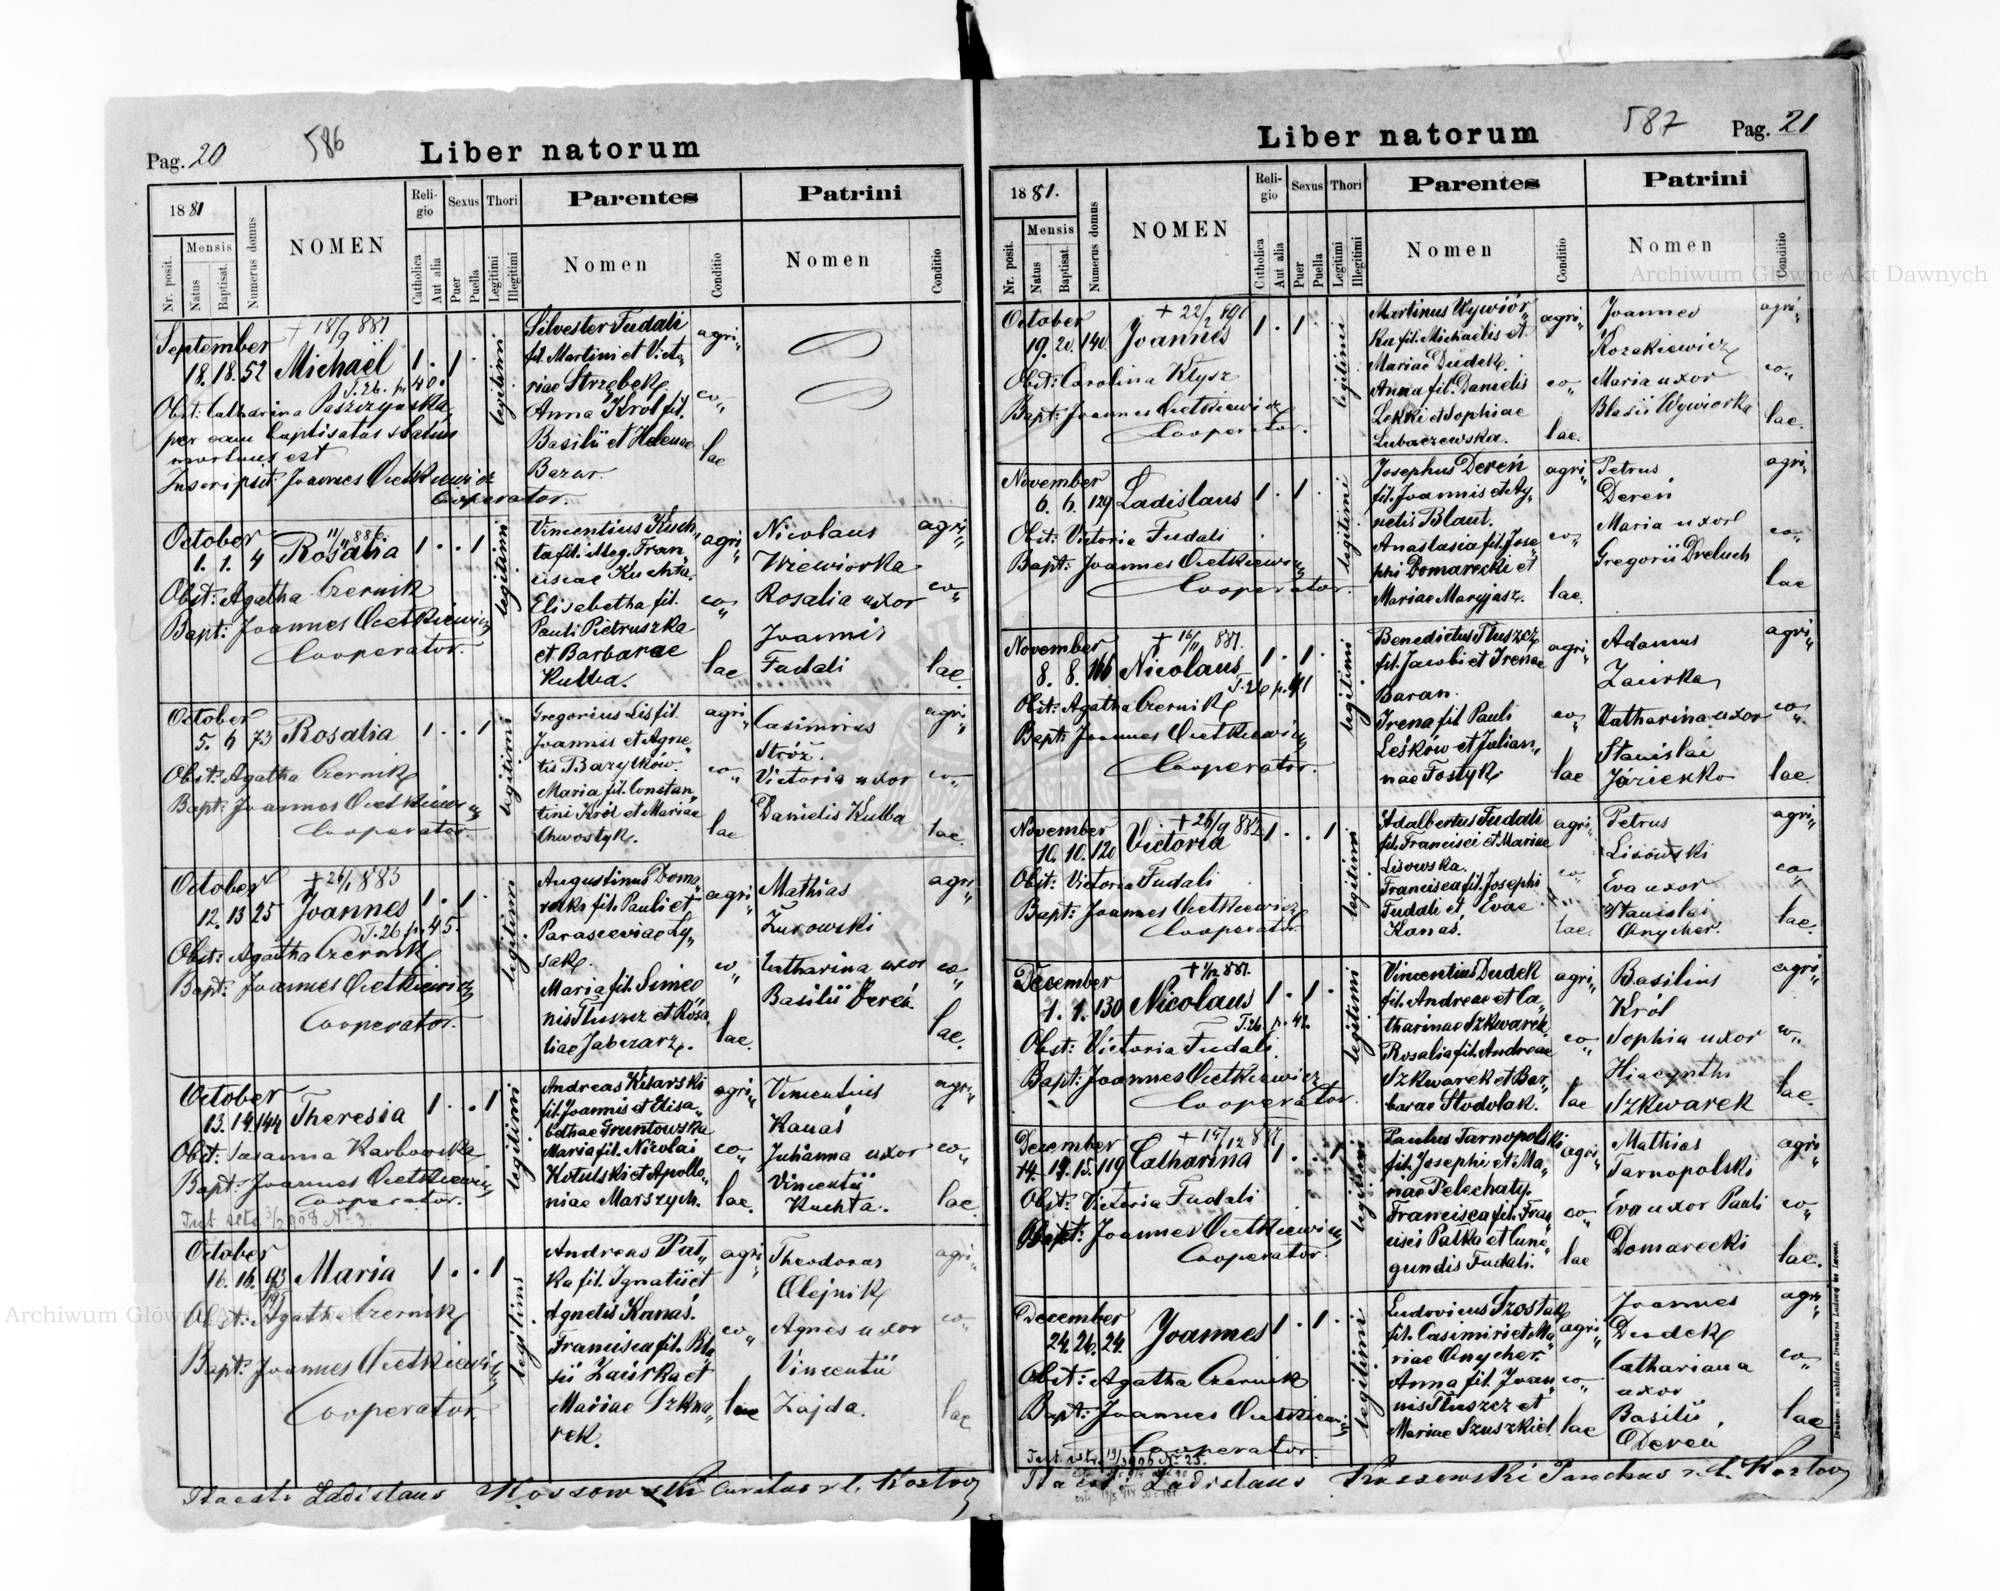 Pag. 20
586
Liber natorum
1881
Nr. posit.
Mensis
Natus
Baptisat.
Numerus domus
NOMEN
Religio
Catholica
Aut alia
Sexus
Puer
Puella
Thori
Legitimi
Illegitimi
Parentes
Nomen
Conditio
Patrini
Nomen
Conditio
September
+ 18/9 881
18. 18. 52 Michaël 1. 1.
T. 26. p. 40.
Obst: Catharina Paszczyńska
per eam baptisatus statim
mortuus est
Inscripsit Joannes Oietkiewicz
Cooperator.
legitimi
Silvester Fudali
fil. Martini et Victo-
riae Strzębek
Anna Król fil.
Basilii et Helenae
Bazar.
agri-
co-
lae
October
11/11 886.
1. 1. 4 Rosalia 1 . . 1
Obst: Agatha Czernik
Bapt: Joannes Oietkiewicz
Cooperator.
legitimi
Vincentius Kuch-
ta fil. illeg. Fran-
ciscae Kuchta.
Elisabetha fil.
Pauli Pietruszka
et Barbarae
Kulba.
agri-
co-
lae
Nicolaus
Wiewiórka
Rosalia uxor
Joannis
Fudali
agri-
co-
lae.
October
5. 6 73 Rosalia 1 . . 1
Obst: Agatha Czernik
Bapt: Joannes Oietkiewicz
Cooperator.
legitimi
Gregorius Lis fil.
Joannis et Agne-
tis Bazylków.
Maria fil. Constan-
tini Król et Mariae
Chwostyk.
agri-
co-
lae
Casimirus
Stróż.
Victoria uxor
Danielis Kulba
agri-
co-
lae.
October
+ 26/1 883
12. 13 25 Joannes 1 . 1 .
T. 26 p. 45.
Obst: Agatha Czernik
Bapt: Joannes Oietkiewicz
Cooperator.
legitimi
Augustinus Doma-
recki fil. Pauli et
Parasceviae Ły-
sak.
Maria fil. Simeo
nis Tłuszcz et Rosa-
liae Jabczarz.
agri-
co-
lae.
Mathias
Żurowski
Catharina uxor
Basilii Dereń
agri-
co-
lae.
October
13. 14. 144 Theresia 1 . . 1
Obst: Susanna Karbowska
Bapt: Joannes Oietkiewicz
Cooperator.
legitimi
fil. Joannis et Elisa-
bethae Gruntowska
Maria fil. Nicolai
Kotulski et Apollo-
niae Marszych.
agri-
co-
lae.
Vincentius
Kanas
Julianna uxor
Vincentii
Kuchta.
agri-
co-
lae
October
16. 16. 93 Maria 1 . . 1
Obst: Agatha Czernik
Bapt: Joannes Oietkiewicz
Cooperator
legitimi
Andreas Put-
ka fil. Ignatii et
Agnetis Kanas.
Francisca fil. Bla
sii Zaiirka et
Mariae Szkwa-
rek.
agri-
co-
lae
Theodorus
Olejnik
Agnes uxor
Vincentii
Zajda.
agri-
co-
lae
Ita est: Ladislaus Kossowski Curatus r. l. Kozłow
587
Pag. 21
Liber natorum
1881.
Nr. posit.
Mensis
Natus
Baptisat.
Numerus domus
NOMEN
Religio
Catholica
Aut alia
Sexus
Puer
Puella
Thori
Legitimi
Illegitimi
Parentes
Nomen
Conditio
Patrini
Nomen
Conditio
October
19. 20. 140 Joannes 1 . 1 .
Obst: Carolina Kłysz
Bapt: Joannes Oietkiewicz
Cooperator.
legitimi
Martinus Wywiór-
ka fil. Michaelis et
Mariae Dudek.
Anna fil. Danielis
Łekki et Sophiae
Lubaczewska.
agri-
co-
lae.
Joannes
Kozakiewicz
Maria uxor
Blasii Wywiorka
agri-
co-
lae.
November
6. 6. 129 Ladislaus 1 . 1 .
Obst: Victoria Fudali
Bapt: Joannes Oietkiewicz
Cooperator.
legitimi
Josephus Dereń
fil. Joannis et Ag-
netis Blaut.
Anastasia fil. Jose-
phi Domarecki et
Mariae Maryjasz.
agri-
co-
lae.
Petrus
Dereń
Maria uxor
Gregorii Dreluch
agri-
co-
lae
November
+ 16/11 881.
8. 8. 166 Nicolaus 1 . 1 .
T. 26 p. 41
Obst: Agatha Czernik
Bapt: Joannes Oietkiewicz
Cooperator.
legitimi
Benedictus Tłuszcz
fil. Jacobi et Irenae
Baran.
Irena fil Pauli
Leśków et Julian-
nae Fostyk
agri-
co-
lae
Adamus
Zaiirka
Catharina uxor
Stanislai
Jazienko
agri-
co-
lae
November
+ 26/9 882
10. 10. 120 Victoria 1 . . 1
Obst: Victoria Fudali
Bapt: Joannes Oietkiewicz
Cooperator.
legitimi
Adalbertus Fudali
fil. Francisci et Mariae
Lisowska.
Francisca fil. Josephi
Fudali et Evae
Kanas.
agri-
co-
lae.
Petrus
Lisowski
Eva uxor
Stanislai
Onycher.
agri-
co-
lae.
December
+ 1/12 881.
1. 1. 130 Nicolaus 1 . 1 .
T. 26. p. 41.
Obst: Victoria Fudali
Bapt: Joannes Oietkiewicz
Cooperator.
legitimi
Vincentius Dudek
fil. Andreae et Ca-
tharinae Szkwarek
Rosalia fil. Andreae
Szkwarek et Bar-
barae Stodolak.
agri-
co-
lae
Basilius
Król
Sophia uxor
Hiacynthi
Szkwarek
agri-
co-
lae.
December
14. 15. 119 Catharina 1 . . 1
Obst: Victoria Fudali
Bapt: Joannes Oietkiewicz
Cooperator.
legitimi
Paulus Tarnopolski
fil. Josephi et Ma-
riae Pelechaty.
Francisca fil. Fran-
cisci Pałka et Cune-
gundis Fudali.
agri-
co-
lae
Mathias
Tarnopolski
Eva uxor Pauli
Domarecki
agri-
co-
lae.
December
24. 26. 24. Joannes 1 . 1 .
Obst: Agatha Czernik
Bapt: Joannes Oietkiewicz
Cooperator
legitimi
Ludovicus Szostak
fil. Casimiri et Ma-
riae Onycher.
Anna fil. Joan-
nis Tłuszcz et
Mariae Szuszkiel
agri-
co-
lae
Joannes
Dudek
Cathariana
uxor
Basilii
Dereń
agri-
co-
lae
Ita est: Ladislaus Kossowski Parochus r. l. Kozłow
Archiwum Główne Akt Dawnych
Archiwum Główne Akt Dawnych